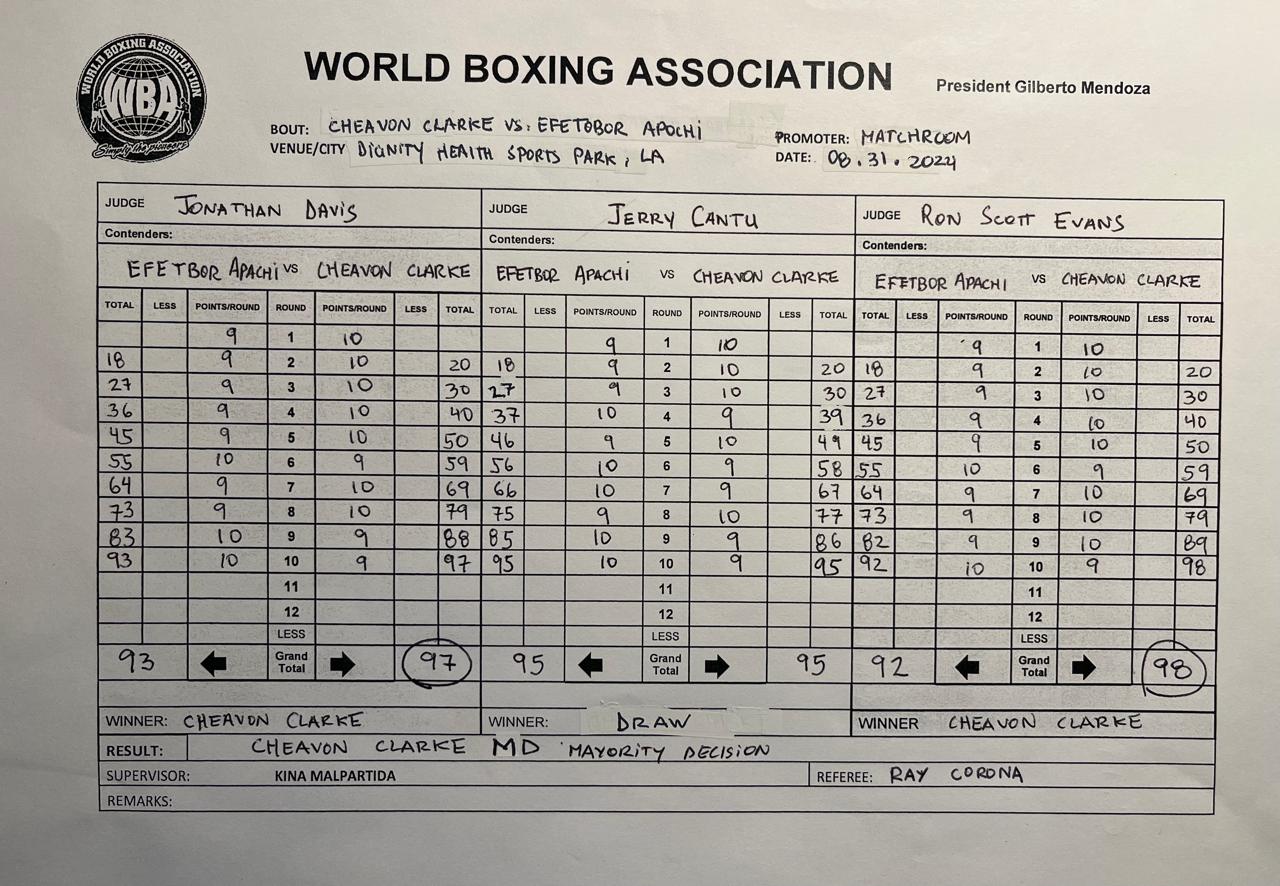 WORLD BOXING ASSOCIATION
WBA
Simply the pioneers
WORLD BOXING ASSOCIATION President Gilberto Mendoza
BOUT: CHEAVON CLARKE VS. EFETOBOR APOCHI PROMOTER: MATCHROOM
VENUE/CITY DIGNITY HEALTH SPORTS PARK, LA DATE: 08.31.2024
JUDGE JONATHAN DAVIS JUDGE JERRY CANTU JUDGE RON SCOTT EVANS
Contenders: Contenders: Contenders:
EFETBOR APACHI VS CHEAVON CLARKE EFETBOR APACHI VS CHEAVON CLARKE EFETBOR APACHI VS CHEAVON CLARKE
TOTAL LESS POINTS/ROUND ROUND POINTS/ROUND LESS TOTAL TOTAL LESS POINTS/ROUND ROUND POINTS/ROUND LESS TOTAL TOTAL LESS POINTS/ROUND ROUND POINTS/ROUND LESS TOTAL
9 1 10 9 1 10 9 1 10
18 9 2 10 20 18 9 2 10 20 18 9 2 10 20
27 9 3 10 30 27 9 3 10 30 27 9 3 10 30
36 9 4 10 40 37 10 4 9 39 36 9 4 10 40
45 9 5 10 50 46 9 5 10 49 45 9 5 10 50
55 10 6 9 59 56 10 6 9 58 55 10 6 9 59
64 9 7 10 69 66 10 7 9 67 64 9 7 10 69
73 9 8 10 79 75 9 8 10 77 73 9 8 10 79
83 10 9 9 88 85 10 9 9 86 82 9 9 10 89
93 10 10 9 97 95 10 10 9 95 92 10 10 9 98
11 11 11
12 12 12
LESS LESS LESS
93 Grand Total 97 95 Grand Total 95 92 Grand Total 98
WINNER: CHEAVON CLARKE WINNER: DRAW WINNER CHEAVON CLARKE
RESULT: CHEAVON CLARKE MD MAYORITY DECISION
SUPERVISOR: KINA MALPARTIDA REFEREE: RAY CORONA
REMARKS: